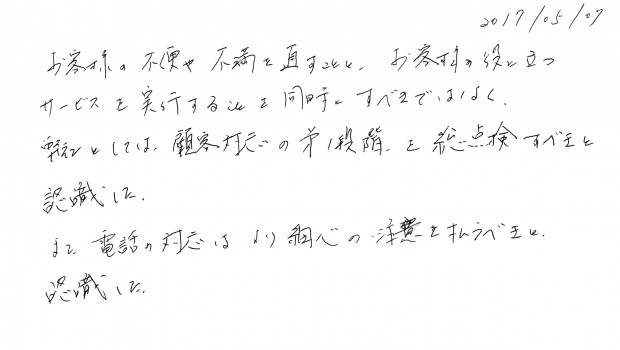 2017/05/07
お客様の不便や不満を直すことと、お客様の役に立つ
サービスを実行することを同時にすべきではなく、
としては、顧客対応の第1段階を総点検すべきと
認識した。
また電話の対応はより細心の注意を払うべきと、
認識した。